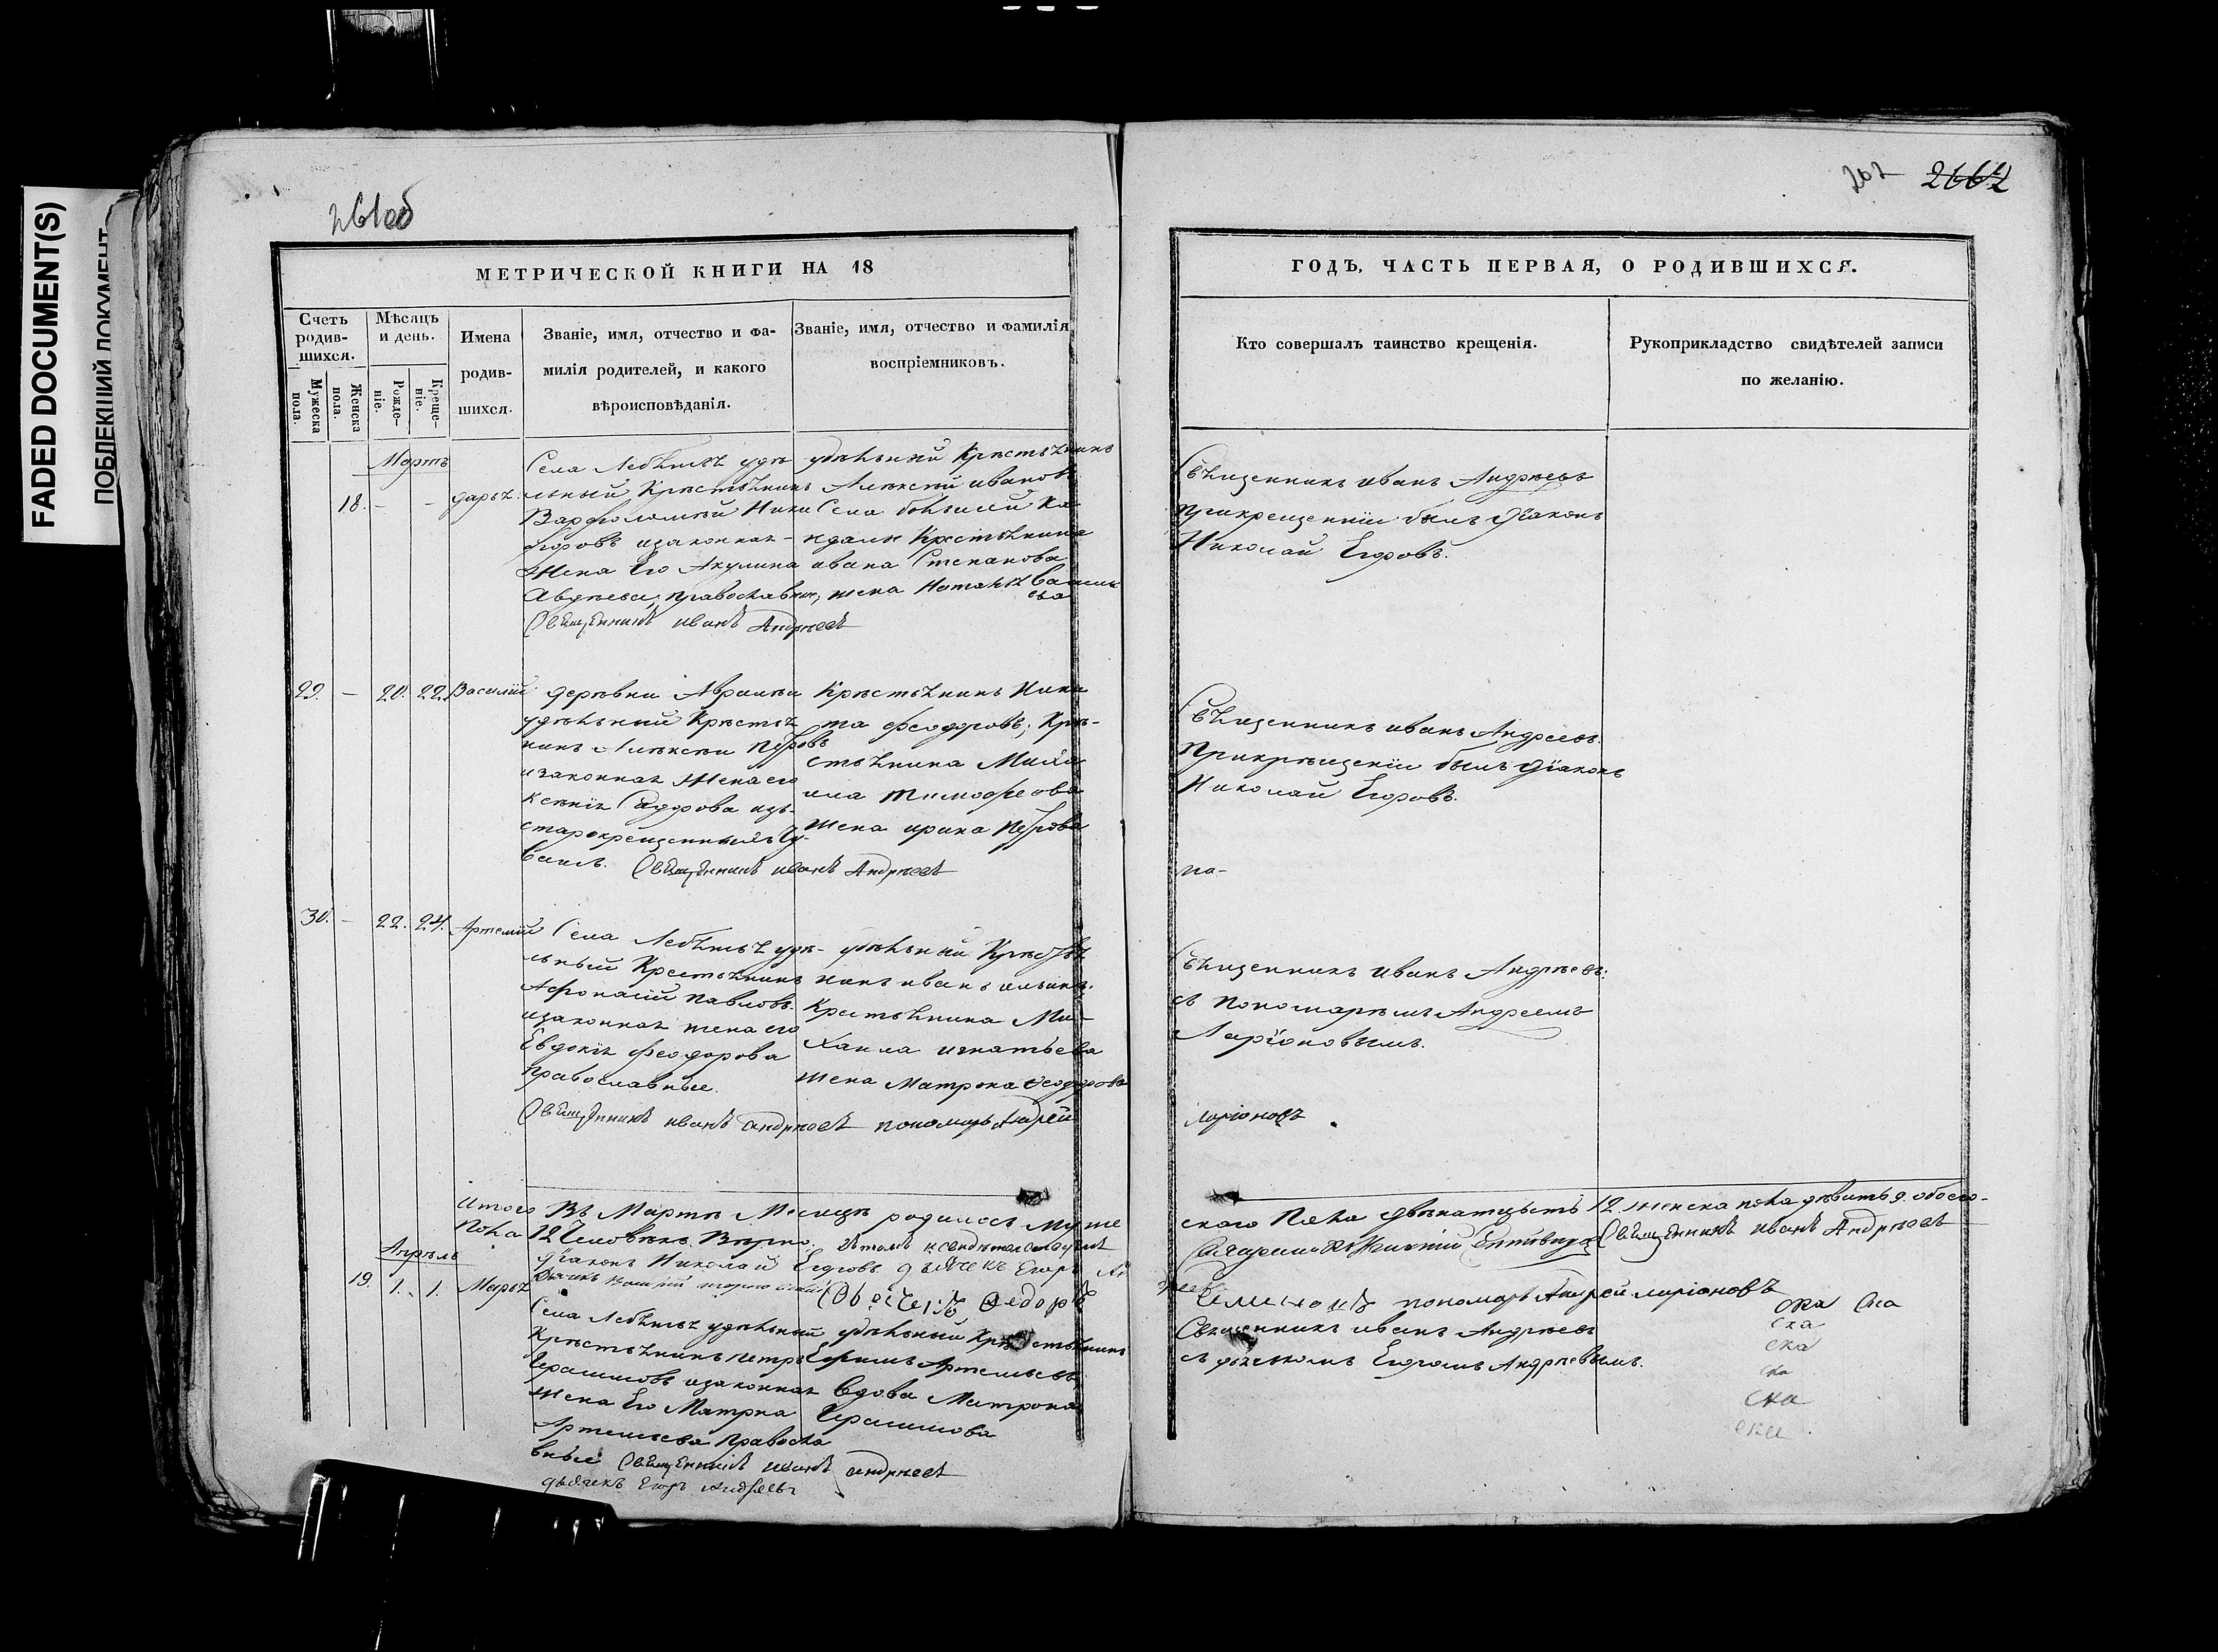 FADED DOCUMENT(S)
ПОБЛЕКШИЙ ДОКУМЕНТ
261об
262 2662
МЕТРИЧЕСКОЙ КНИГИ НА 18
Счетъ родив-шихся.
Мужеска пола.
Женска пола.
Мѣсяцъ и день.
Рожде-ніе.
Креще-ніе.
Имена
родив-
шихся.
Званіе, имя, отчество и фа-
милія родителей, и какого
вѣроисповѣданія.
Званіе, имя, отчество и фамилія
воспріемниковъ.
Мартъ
18. - - дарья
Села Лебѣжья удѣ
льный Крѣстьянинъ
Варфоломѣй Ники
форовъ изаконная
Жена Его Акулина
Авдѣева, православные,
Свящэнникъ иванъ Андрѣевъ
удѣльный Крѣстьянинъ
Алѣксѣй ивановъ
Села большой Ка
Крестьянина
ивана Степанова
жена Наталья Василь
ева
29. - 20. 22. Василій
деревни Авралѣи
удѣльный Крѣстья
нинъ Алѣксѣи Пѣтровъ
изаконная Жена его
Ксѣнія Сидорова изъ
старокрещенныхъ Чу-
вашъ. Свящэнникъ иванъ Андрѣевъ
Крѣстьянинъ Ники
та феодоровъ; Крѣ-
стьянина Миха
ила тимофеова
Жена ирина Пѣтрова
30. - 22. 24. Артемій
Села Лебѣжья удѣ-
льный Крестьянинъ
Афонасій павловъ.
изаконная жена его
Евдокія феодорова
православные.
Свящэнникъ иванъ андрѣевъ пономарь Андрѣй
удѣльный Крѣстья
нинъ иванъ ильинъ.
Крестьянина Ми-
хаила игнатьева
жена матрона Феодорова
итого Въ Мартѣ Мѣсяцѣ родилось муже
пола 12 Человѣкъ. Вѣрно.
діаконъ Николай Егоровъ дьячекъ Егоръ Ан
Апрѣль
19. 1. 1. Марья
Федоръ
Села Лебѣжья удѣльный
Крѣстьянинъ петръ
Герасимовъ изаконная
жена Его Матрна
Артемьева правосла
вные Свящэнникъ иванъ андрѣевъ
дьячекъ Егоръ Андреевъ
удѣльный Крѣстьянинъ
Ефимъ Артемьевъ
вдова Матрона
Герасимова
ГОДЪ, ЧАСТЬ ПЕРВАЯ, О РОДИВШИХСЯ.
Кто совершалъ таинство крещенія.
Рукоприкладство свидѣтелей записи
по желанію.
Свѣщенникъ иванъ Андрѣевъ
прикрещеніи былъ діаконъ
Николай Егоровъ.
Свѣщенникъ иванъ Андреевъ.
Прикрѣщеніи былъ діаконъ
Николай Егоровъ.
по-
Свѣщенникъ иванъ Андрѣевъ:
съ пономарѣмъ Андреемъ
Ларіоновымъ.
ларіоновъ
скаго Пола двѣнатцыть 12. женска пола дѣвить 9. обоего-
Свящэнникъ иванъ Андрѣевъ
дреевъ
пономарь Андрей ларіоновъ
Священникъ иванъ Андрѣевъ
съ дьячькомъ Егоромъ Андрѣевымъ.
ска ска
ска
ска
ска
ска
ска